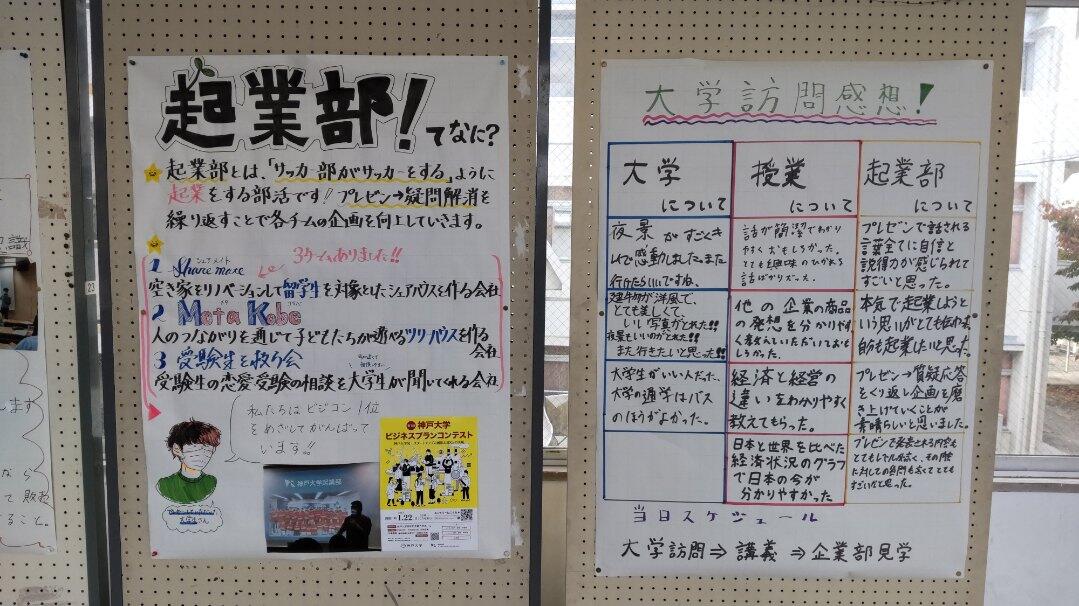 起業部!
てなに?
起業部とは、「サッカー部がサッカーをする」ように
起業をする部活です!! プレゼン→疑問解消を
繰り返すことで各チームの企画を向上していきます。
3チームありました!!
1 share mate
シェア メイト
空き家をリノベーションして留学生を対象としたシェアハウスを作る会社
2 Mota Kobe
人のつながりを通じて子どもたちが遊べるツリーハウスを作る
会社
3 受験生を救う会
受験生の恋愛受験の相談を大学生が聞いてくれる会社
私たちはビジコン1位
をめざしてがんばって
います!!
神戸大学
ビジネスプランコンテスト
1.22
神戸大学
大学訪問感想!
大学
について
授業
について
起業部
について
夜景がすごくき
れいで感動しました。また
行けたらいいですね。
話が簡潔でわかり
やすくおもしろかった。
とても興味のひかれる
話ばかりだった。
プレゼンで話される
言葉全てに自信と
説得力が感じられて
すごいと思った。
建物が洋風で、
とても美しくて、
いい写真がとれた!!
夜景もいいのがとれた!!
また行きたいと思った!!
他の企業の商品
の発想を分かりやす
く教えていただいておも
しろかった。
本気で起業しようと
いう思いがとても伝わり
自分も起業したいと思った
大学生がいい人だった、
大学の通学はバス
のほうがよかった。
経済と経営の
違いをわかりやすく
教えてもらった。
プレゼン→質疑応答
をくり返し企画を磨
き上げていくことが
素晴らしいと思いました。
日本と世界を比べた
経済状況のグラフ
で日本の今が
分かりやすかった
プレゼンで発表される内容も
とてもレベルが高く、その際
に対しての質問も高くてとても
すごいなと思った。
当日スケジュール
大学訪問⇒講義⇒企業部見学
23